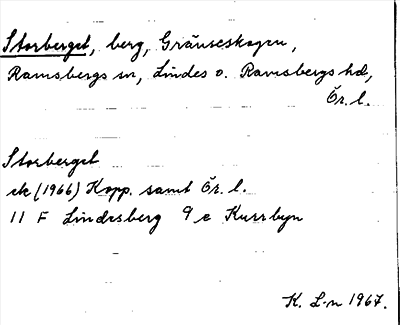 Storberget, berg, Gränsskogen,
Ramsbergs sn, Lindes o. Ramsbergs hd,
Ör. l.
Storberget
ek (1966) Kopp. samt Ör. l.
11 F Lindesberg 9 e Kurrbyn
K. L-n 1967.